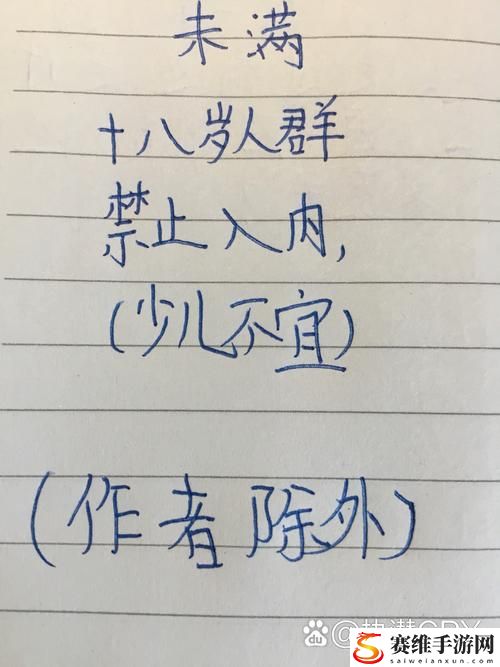 未满
十八岁人群
禁止入内,
(少儿不宜)
(作者除外)
赛维手游网
www.saiwelanxun.com